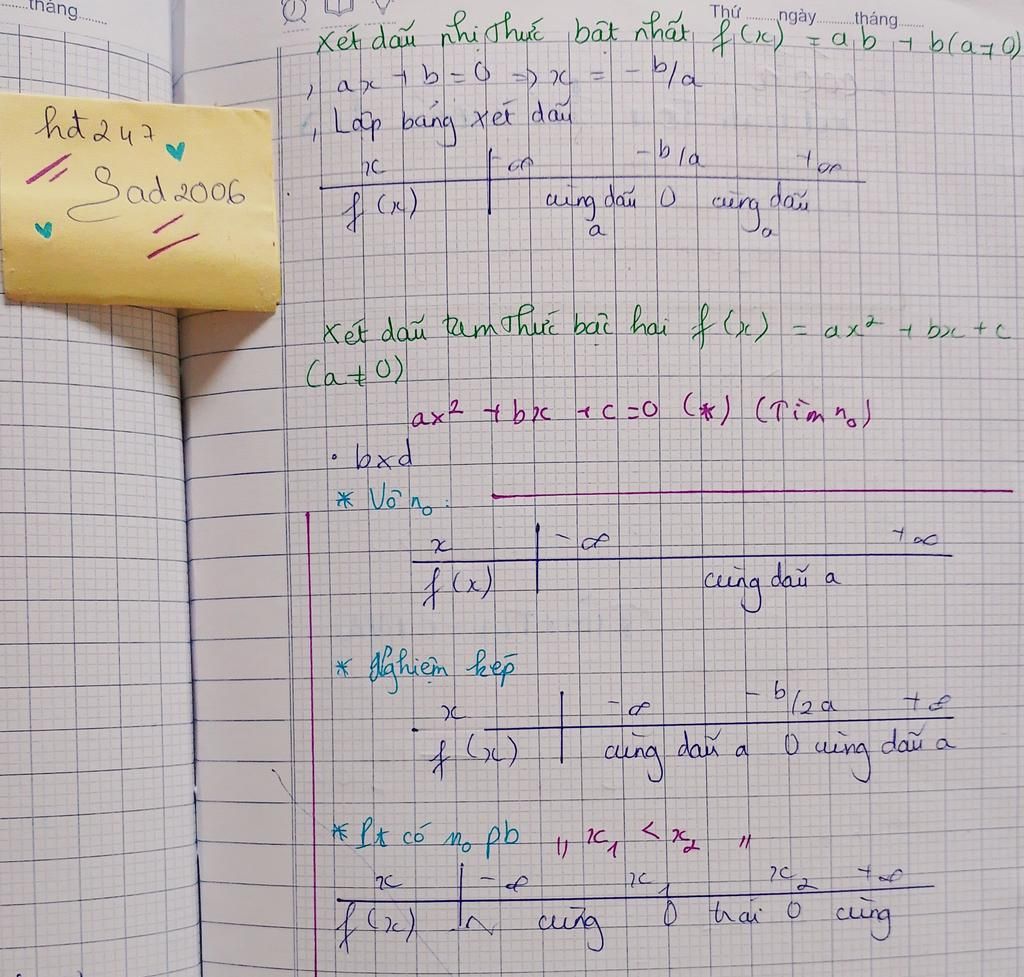 tháng
Thứ ngày tháng
hđ247
Sad2006
Xét dấu nhị thức bật nhất f(x) = ab + b(a≠0)
, ax + b = 0 => x = -b/a
, Lập bảng xét dấu
x -∞ -b/a +∞
f(x) cùng dấu a 0 cùng dấu a
Xét dấu tam thức bậc hai f(x) = ax² + bx + c
(a ≠ 0)
ax² + bx + c = 0 (*) (Tìm n₀)
• bxd
* Vô n₀:
x -∞ +∞
f(x) cùng dấu a
* Nghiệm kép
x -∞ -b/2a +∞
f(x) cùng dấu a 0 cùng dấu a
* Pt có n₀ pb " x₁ < x₂ "
x -∞ x₁ x₂ +∞
f(x) cùng 0 trái 0 cùng